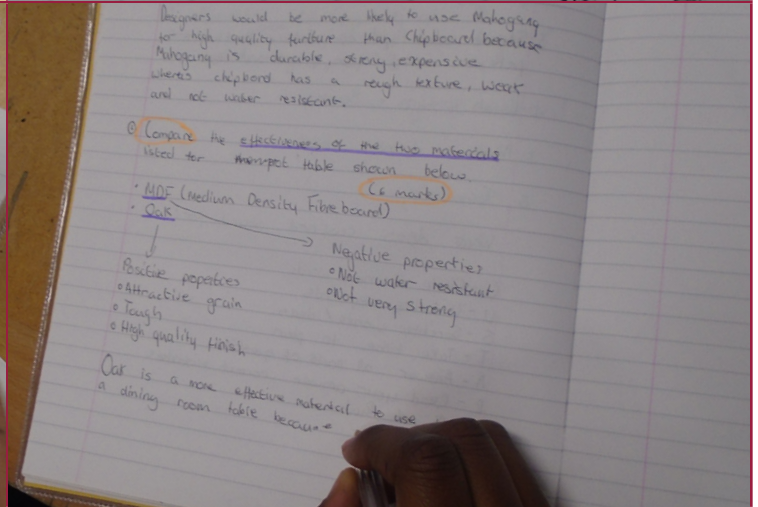 Designers would be more likely to use Mahogany
for high quality furniture than Chipboard because
Mahogany is durable, strong, expensive
wheres chipbord has a rough texture, weak
and not water resistant.
Compare the effectiveness of the two materials
listed for the table shown below.
(6 marks)
• MDF (Medium Density Fibreboard)
• Oak
Negative properties
Not water resistant
Not very strong
Positive properties
Attractive grain
Tough
High quality finish
Oak is a more effective material to use
a dining room table because